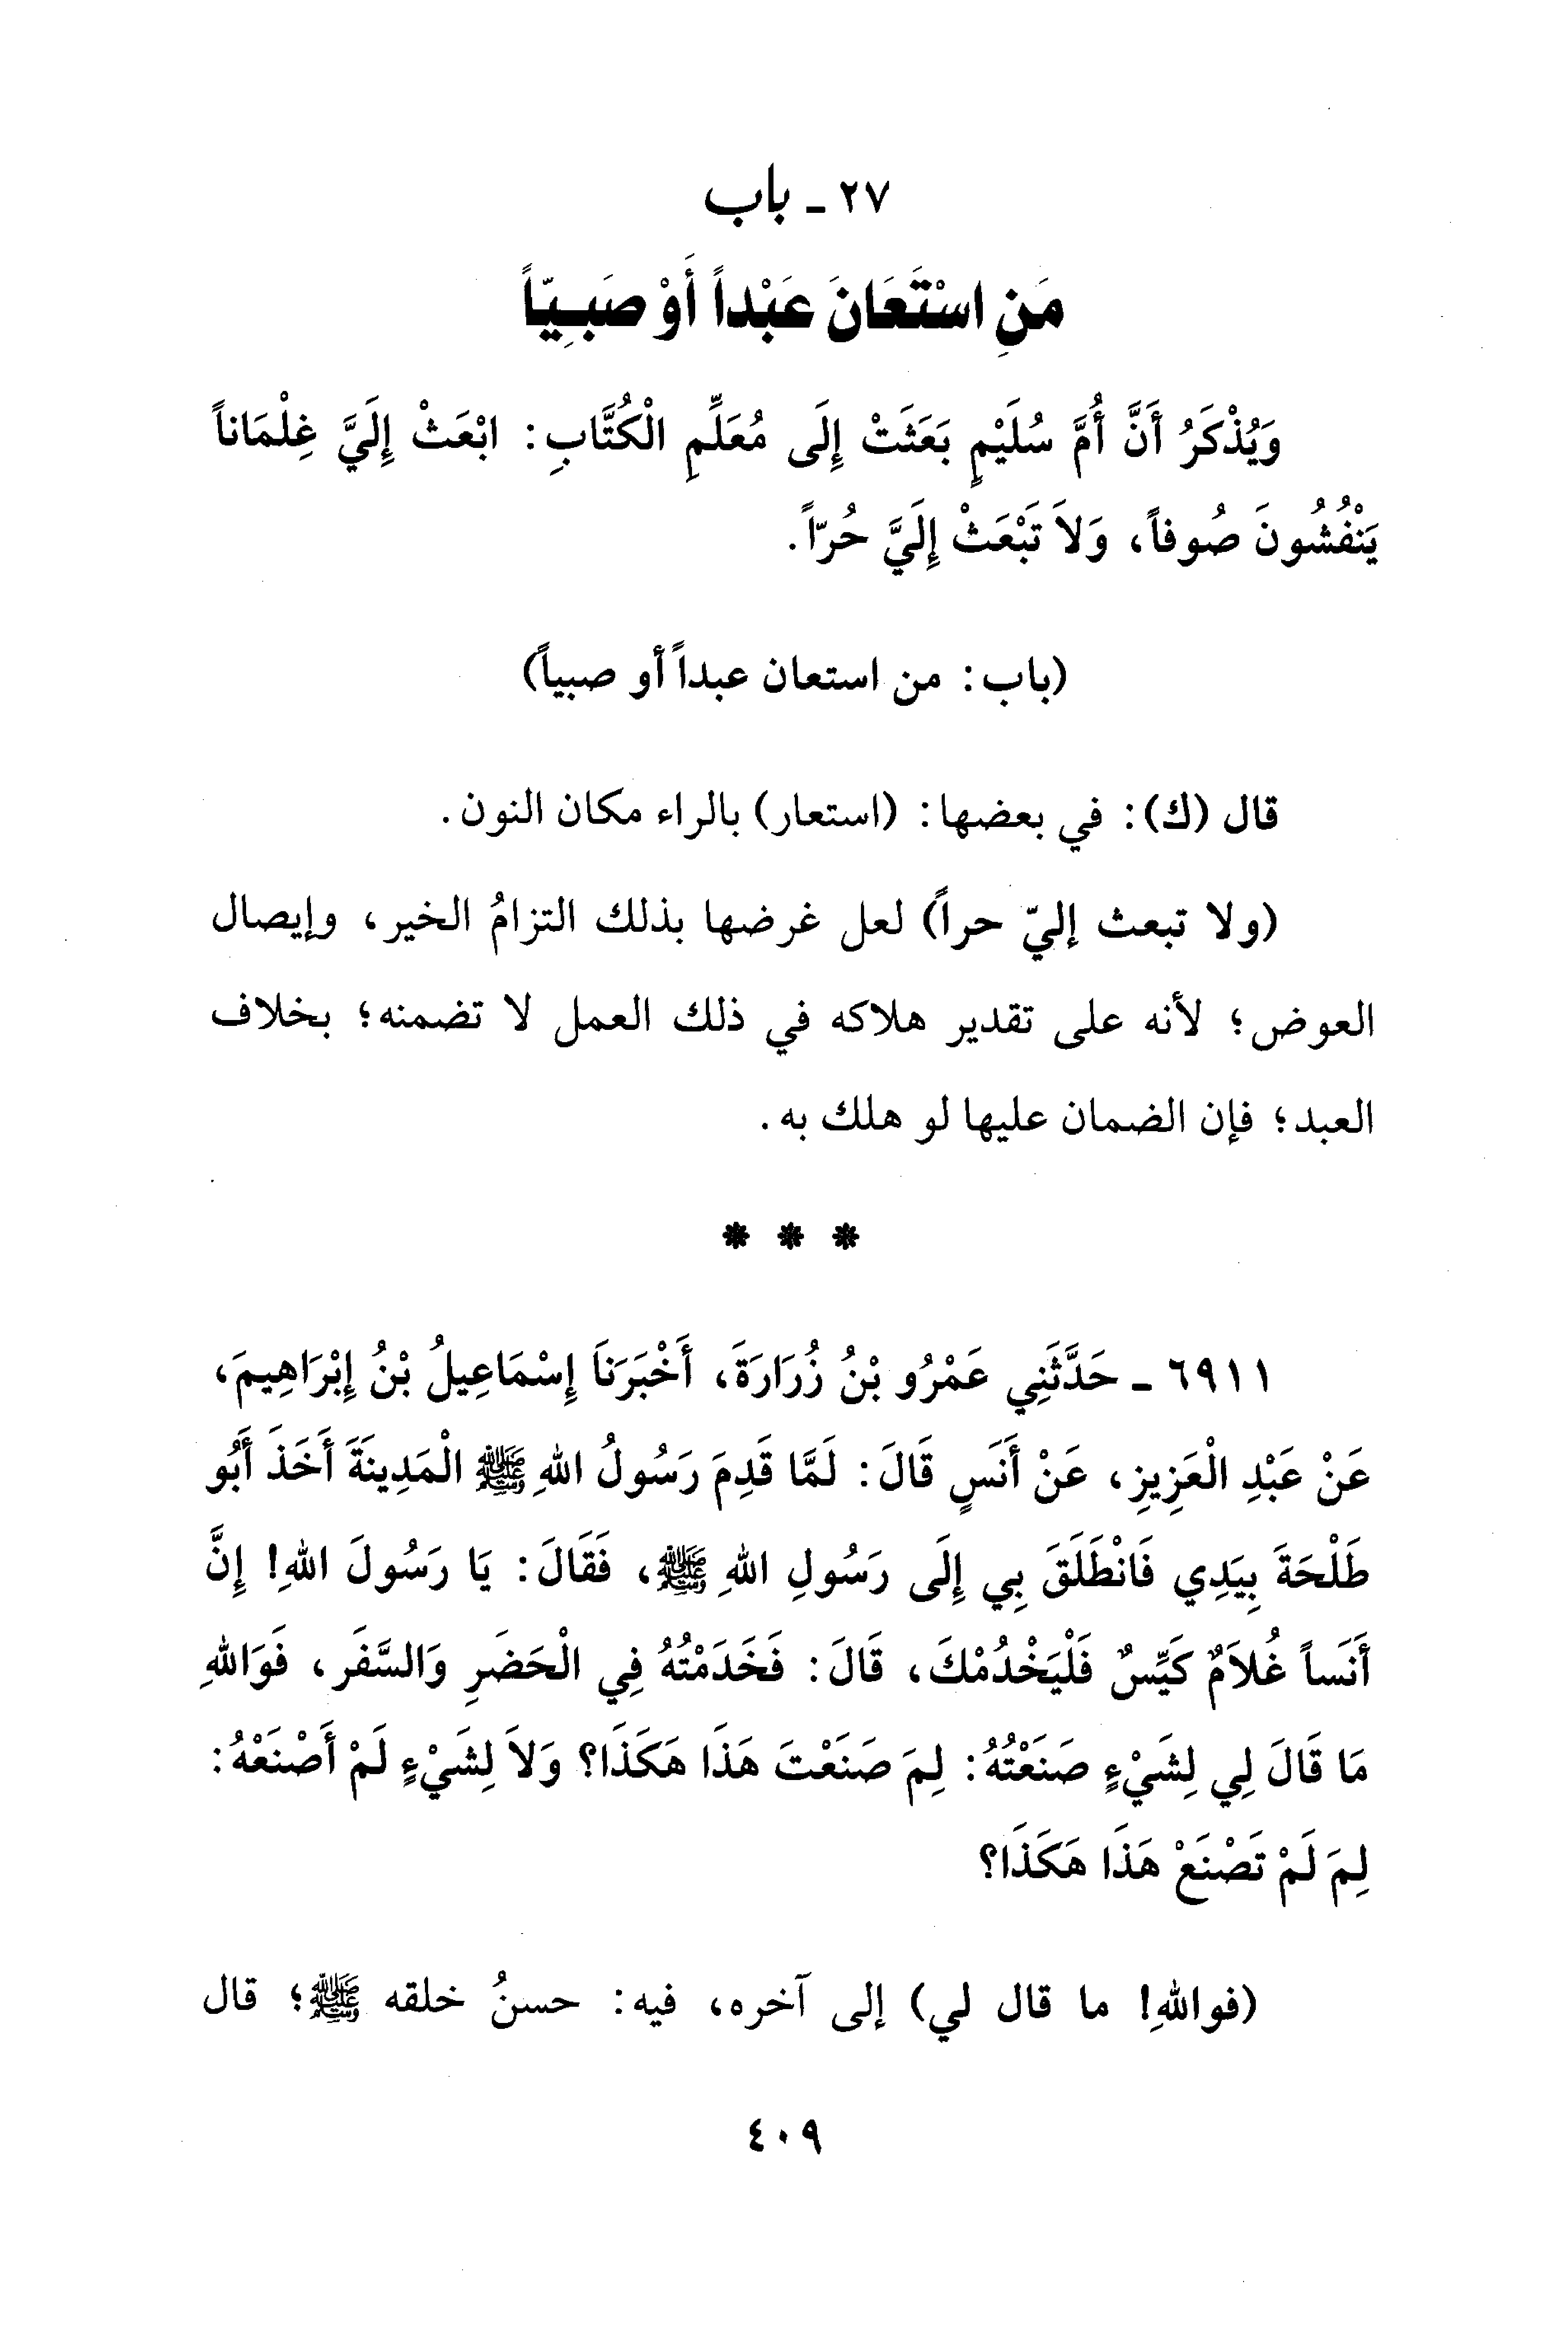 ٢٧ ـ باب
مَنِ اسْتَعَانَ عَبْداً أَوْ صَبِيّاً
وَيُذْكَرُ أَنَّ أُمَّ سُلَيْمٍ بَعَثَتْ إِلَى مُعَلِّمِ الْكُتَّابِ: ابْعَثْ إِلَيَّ غِلْمَاناً
يَنْفُشُونَ صُوفاً، وَلاَ تَبْعَثْ إِلَيَّ حُرّاً.
(باب: من استعان عبداً أو صبياً)
قال (ك): في بعضها: (استعار) بالراء مكان النون.
(ولا تبعث إليّ حراً) لعل غرضها بذلك التزامُ الخير، وإيصال
العوض؛ لأنه على تقدير هلاكه في ذلك العمل لا تضمنه؛ بخلاف
العبد؛ فإن الضمان عليها لو هلك به.
* * *
٦٩١١ ـ حَدَّثَنِي عَمْرُو بْنُ زُرَارَةَ، أَخْبَرَنَا إِسْمَاعِيلُ بْنُ إِبْرَاهِيمَ،
عَنْ عَبْدِ الْعَزِيزِ، عَنْ أَنَسٍ قَالَ: لَمَّا قَدِمَ رَسُولُ اللهِ ﷺ الْمَدِينَةَ أَخَذَ أَبُو
طَلْحَةَ بِيَدِي فَانْطَلَقَ بِي إِلَى رَسُولِ اللهِ ﷺ، فَقَالَ: يَا رَسُولَ اللهِ! إِنَّ
أَنَساً غُلاَمٌ كَيِّسٌ فَلْيَخْدُمْكَ، قَالَ: فَخَدَمْتُهُ فِي الْحَضَرِ وَالسَّفَرِ، فَوَاللهِ
مَا قَالَ لِي لِشَيْءٍ صَنَعْتُهُ: لِمَ صَنَعْتَ هَذَا هَكَذَا؟ وَلاَ لِشَيْءٍ لَمْ أَصْنَعْهُ:
لِمَ لَمْ تَصْنَعْ هَذَا هَكَذَا؟
(فواللهِ! ما قال لي) إلى آخره، فيه: حسنُ خلقه ﷺ؛ قال
٤٠٩